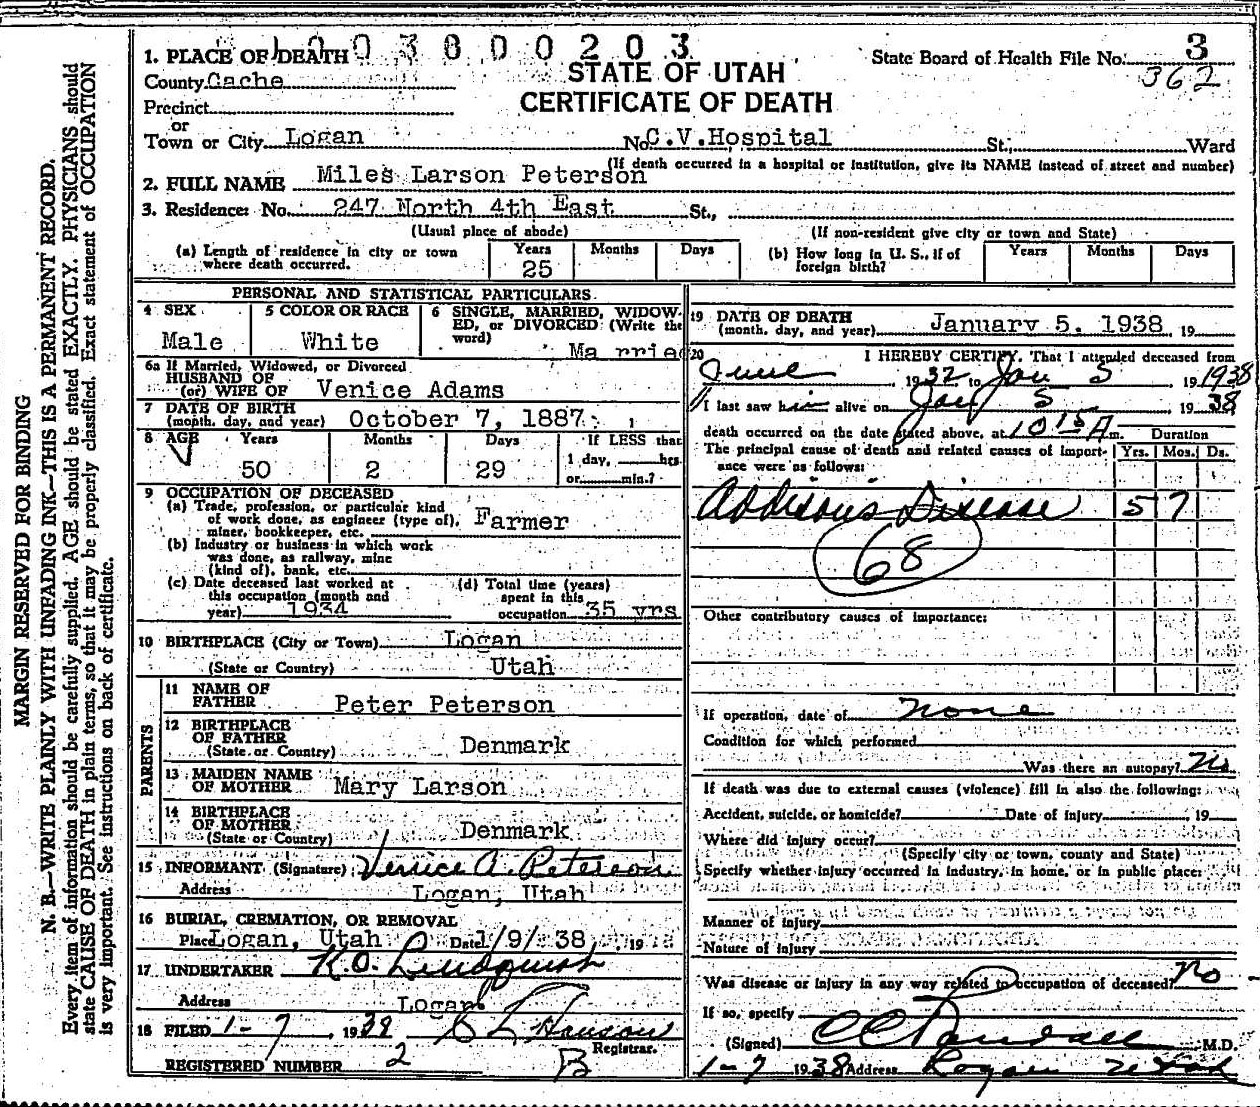 MARGIN RESERVED FOR BINDING
N. B.—WRITE PLAINLY WITH UNFADING INK—THIS IS A PERMANENT RECORD.
Every item of information should be carefully supplied. AGE should be stated EXACTLY. PHYSICIANS should
state CAUSE OF DEATH in plain terms, so that it may be properly classified. Exact statement of OCCUPATION
is very important. See instructions on back of certificate.
1. PLACE OF DEATH 1003800203
State Board of Health File No. 3
362
County Cache
STATE OF UTAH
CERTIFICATE OF DEATH
Precinct
or
Town or City Logan No. C.V.Hospital St., Ward
(If death occurred in a hospital or institution, give its NAME instead of street and number)
2. FULL NAME Miles Larson Peterson
3. Residence: No. 247 North 4th East St.,
(Usual place of abode) (If non-resident give city or town and State)
(a) Length of residence in city or town where death occurred. Years 25 Months Days
(b) How long in U. S., if of foreign birth? Years Months Days
PERSONAL AND STATISTICAL PARTICULARS
4 SEX Male
5 COLOR OR RACE White
6 SINGLE, MARRIED, WIDOWED, or DIVORCED (Write the word) Married
6a If Married, Widowed, or Divorced
HUSBAND OF
(or) WIFE OF Venice Adams
7 DATE OF BIRTH
(month, day, and year) October 7, 1887
8 AGE Years 50 Months 2 Days 29 If LESS than 1 day, hrs. or min.?
9 OCCUPATION OF DECEASED
(a) Trade, profession, or particular kind
of work done, as engineer (type of), Farmer
miner, bookkeeper, etc.
(b) Industry or business in which work
was done, as railway, mine
(kind of), bank, etc.
(c) Date deceased last worked at
this occupation (month and
year) 1934
(d) Total time (years)
spent in this
occupation 35 yrs
10 BIRTHPLACE (City or Town) Logan
(State or Country) Utah
PARENTS
11 NAME OF
FATHER Peter Peterson
12 BIRTHPLACE
OF FATHER
(State or Country) Denmark
13 MAIDEN NAME
OF MOTHER Mary Larson
14 BIRTHPLACE
OF MOTHER
(State or Country) Denmark
15 INFORMANT (Signature) Venice A. Peterson
Address Logan, Utah
16 BURIAL, CREMATION, OR REMOVAL
Place Logan, Utah Date 1/9/ 38, 19
17 UNDERTAKER K.O. Lindquist
Address Logan
18 FILED 1-7 1938 Hanson
Registrar.
REGISTERED NUMBER 2 B
19 DATE OF DEATH
(month, day, and year) January 5, 1938 19
20 I HEREBY CERTIFY, That I attended deceased from
June 1932 to Jan 5 19 1938
I last saw him alive on Jan 5 19 38,
death occurred on the date stated above, at 10 15 A m. Duration
The principal cause of death and related causes of importance were as follows: Yrs. Mos. Ds.
Addison's Disease 5 7
68
Other contributory causes of importance:
If operation, date of none
Condition for which performed
Was there an autopsy? No
If death was due to external causes (violence) fill in also the following:
Accident, suicide, or homicide? Date of injury , 19
Where did injury occur?
(Specify city or town, county and State)
Specify whether injury occurred in industry, in home, or in public place:
Manner of injury
Nature of injury
Was disease or injury in any way related to occupation of deceased? No
If so, specify
(Signed) CC Randall M.D.
1-7 1938 Address Logan Utah